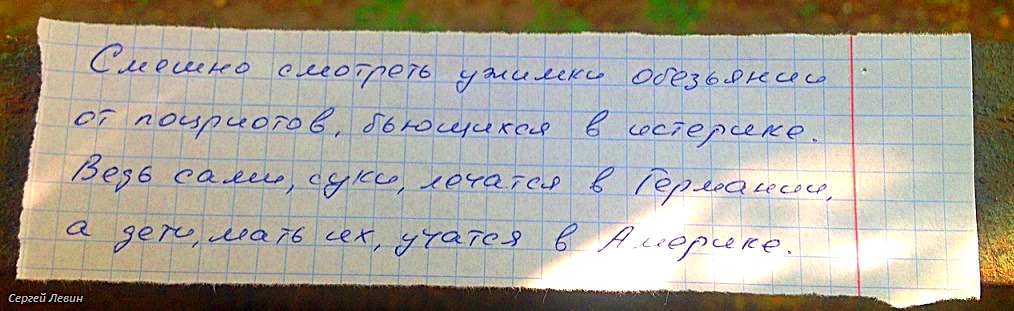 Смешно смотреть ужимки обезьянии
от поцриотов, бьющихся в истерике.
Ведь сами, суки, лечатся в Германии,
а дети, мать их, учатся в Америке.
Сергей Левин